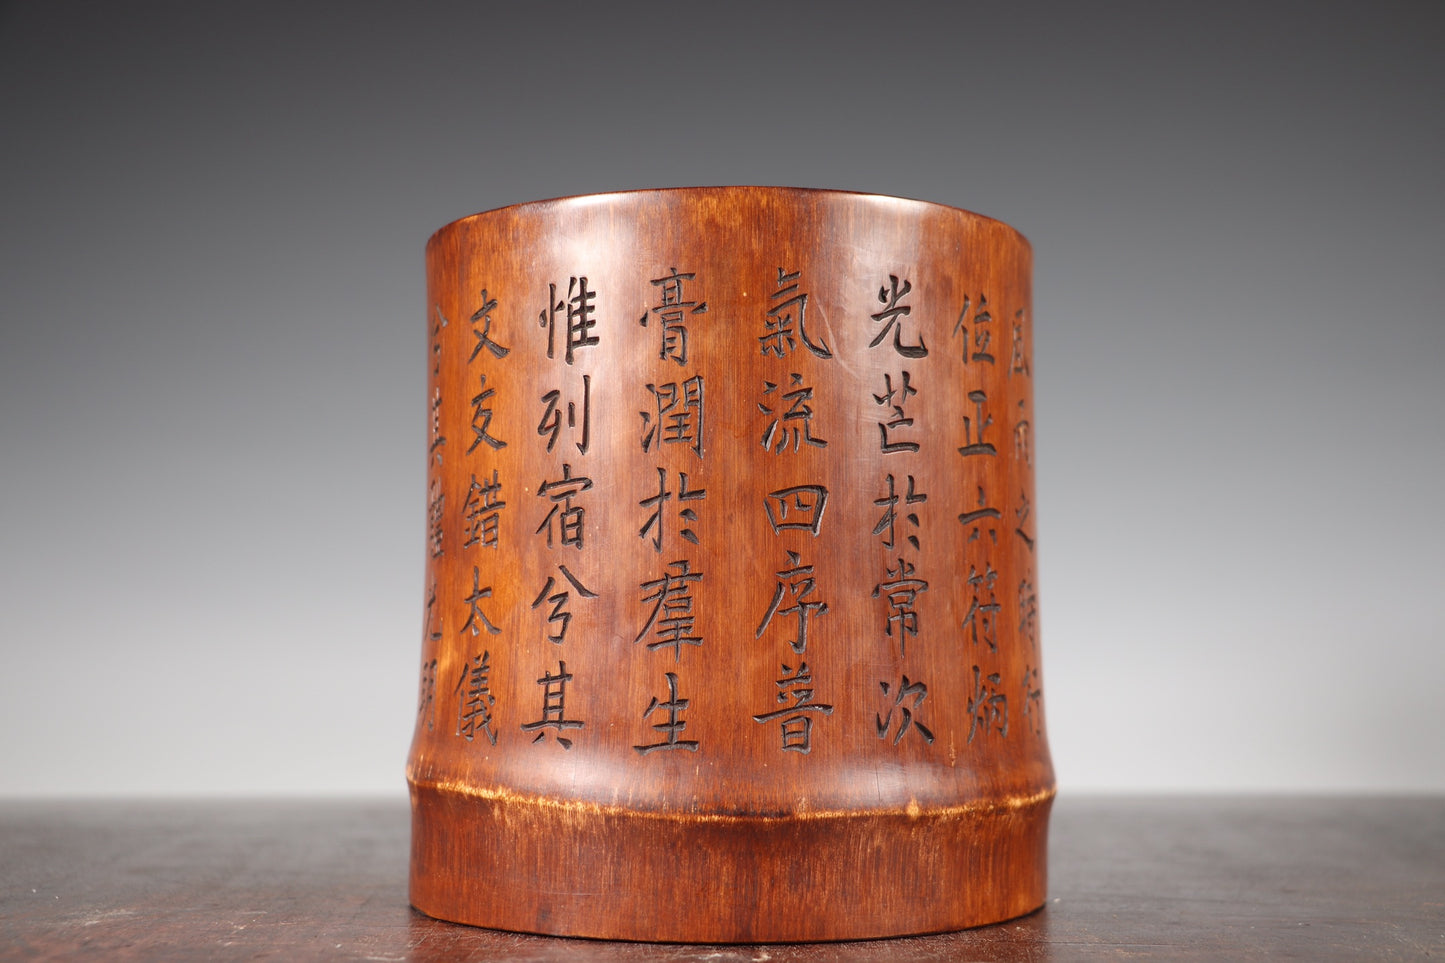 風雨之時行
位正六符炳
光芒於常次
氣流四序普
膏潤於羣生
惟列宿兮其
文交錯太儀
其